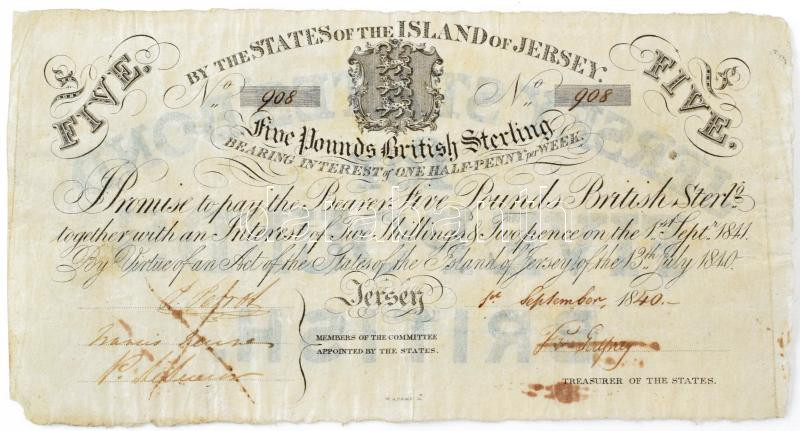 BY THE STATES OF THE ISLAND OF JERSEY.
£ FIVE.
£ FIVE.
No. 908
No. 908
Five Pounds British Sterling
BEARING INTEREST of ONE HALF-PENNY per WEEK.
I Promise to pay the Bearer Five Pounds British Sterlg.
together with an Interest of Two Shillings & Two pence on the 1st. Septr. 1841.
By Virtue of an Act of the States of the Island of Jersey of the 13th July 1840.
Jersey 1st September, 1840.-
Francis
MEMBERS OF THE COMMITTEE
APPOINTED BY THE STATES.
TREASURER OF THE STATES.